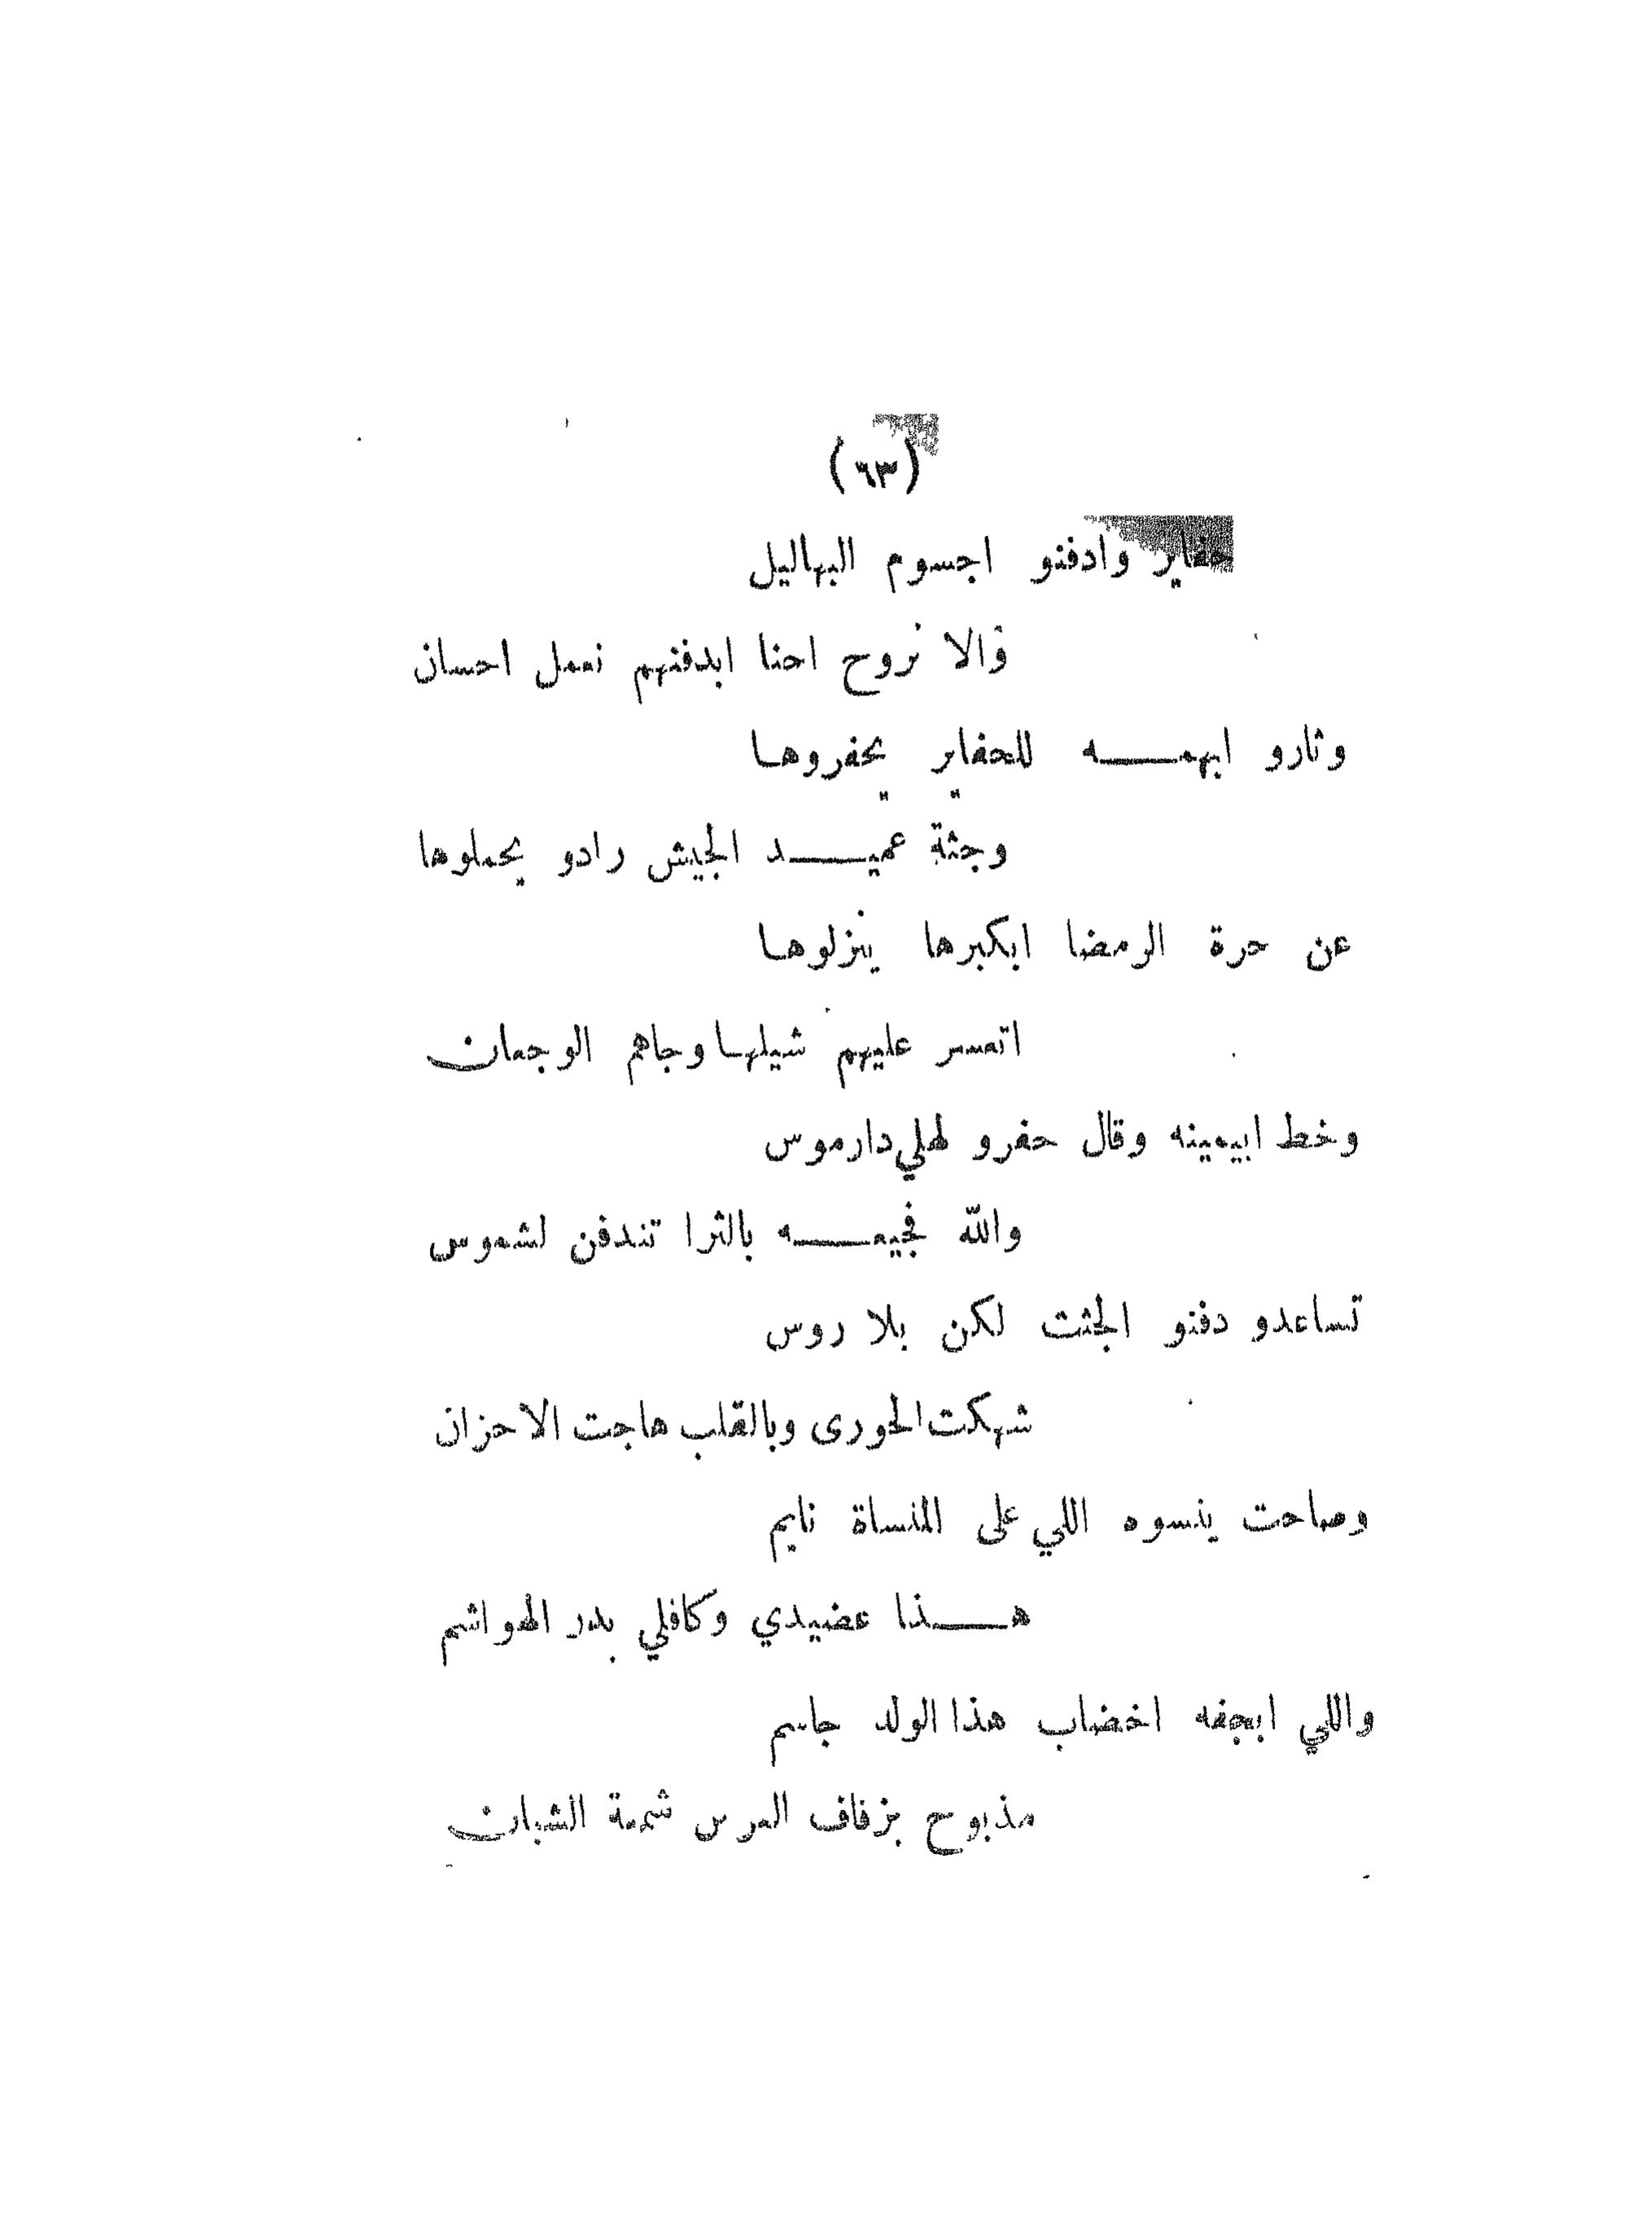 (٦٣)
حفاير وادفنو اجسوم البهاليل
والا نروح احنا ابدفنهم نعمل احسان
وثارو ابهمــــه للحفاير يحفروها
وجثة عميــــد الجيش رادو يحملوها
عن حرة الرمضا ابكبرها ينزلوها
اتعسر عليهم شيلها وجاهم الوجعان
وخط ابيمينه وقال حفرو لهلي دارموس
والله فجيعــــه بالثرا تندفن لشموس
تساعدو دفنو الجثث لكن بلا روس
شهكت الحورى وبالقلب هاجت الاحزان
وصاحت ينسوه اللي على المنساة نايم
هــــذا عضيدي وكافلي بدر الهواشم
واللي ابجفه اخضاب هذا الولد جاسم
مذبوح بزفاف العرس شمعة الشبان